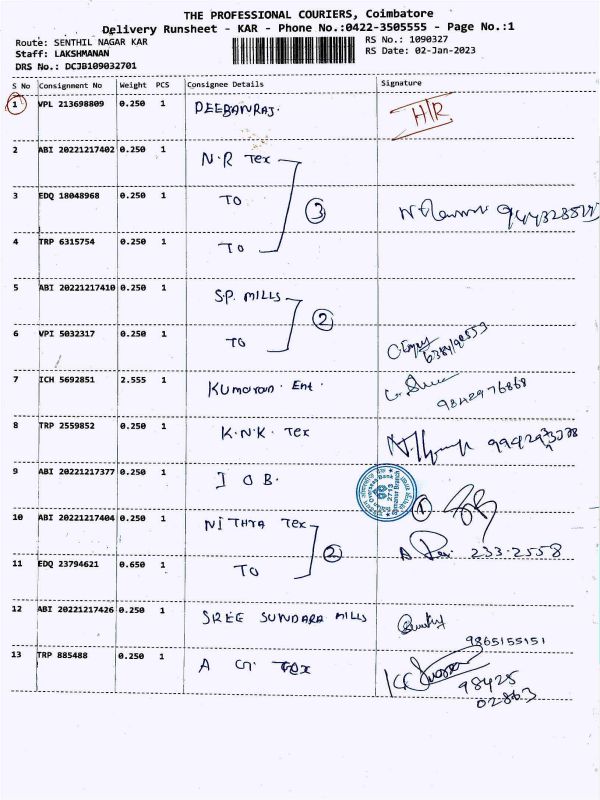 THE PROFESSIONAL COURIERS, Coimbatore
Delivery Runsheet - KAR - Phone No.:0422-3505555 - Page No.:1
Route: SENTHIL NAGAR KAR
Staff: LAKSHMANAN
DRS No.: DCJB109032701
RS No.: 1090327
RS Date: 02-Jan-2023
S No Consignment No Weight PCS Consignee Details Signature
1 VPL 213698809 0.250 1 DEEBANRAJ. H/R
2 ABI 20221217402 0.250 1 N.R Tex
3 EDQ 18048968 0.250 1 TO 3
4 TRP 6315754 0.250 1 TO
5 ABI 20221217410 0.250 1 S.P. MILLS
2
6 VPI 5032317 0.250 1 TO
7 ICH 5692851 2.555 1 Kumaran. Ent. 9842976868
8 TRP 2559852 0.250 1 K.N.K. Tex
9 ABI 20221217377 0.250 1 I O B. 1
10 ABI 20221217404 0.250 1 NITHYA Tex 233.2558
2
11 EDQ 23794621 0.650 1 TO
12 ABI 20221217426 0.250 1 SREE SUNDARA MILLS
9865155151
13 TRP 885488 0.250 1 A G. Tex
98425
02863